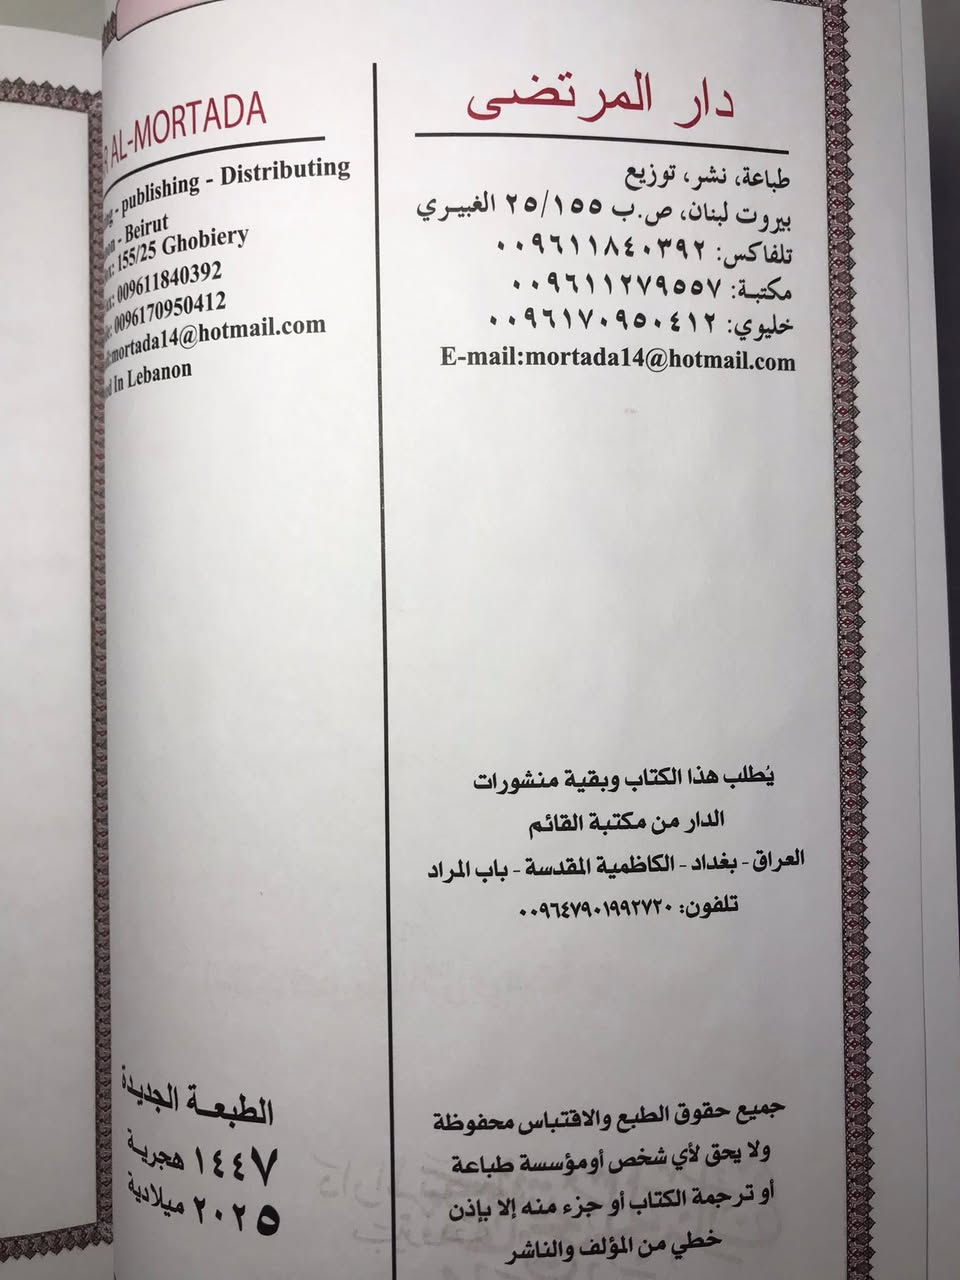 دار المرتضى
طباعة، نشر، توزيع
بيروت لبنان، ص.ب ٢٥/١٥٥ الغبيري
تلفاكس: ٠٠٩٦١١٨٤٠٣٩٢
مكتبة: ٠٠٩٦١١٢٧٩٥٥٧
خليوي: ٠٠٩٦١٧٠٩٥٠٤١٢
E-mail:mortada14@hotmail.com
يُطلب هذا الكتاب وبقية منشورات
الدار من مكتبة القائم
العراق - بغداد - الكاظمية المقدسة - باب المراد
تلفون: ٠٠٩٦٤٧٩٠١٩٩٢٧٢٠
جميع حقوق الطبع والاقتباس محفوظة
ولا يحق لأي شخص أومؤسسة طباعة
أو ترجمة الكتاب أو جزء منه إلا بإذن
خطي من المؤلف والناشر
AL-MORTADA
publishing - Distributing
Beirut
155/25 Ghobiery
009611840392
0096170950412
mortada14@hotmail.com
In Lebanon
الطبعة الجديدة
١٤٤٧ هجرية
٢٠٢٥ ميلادية